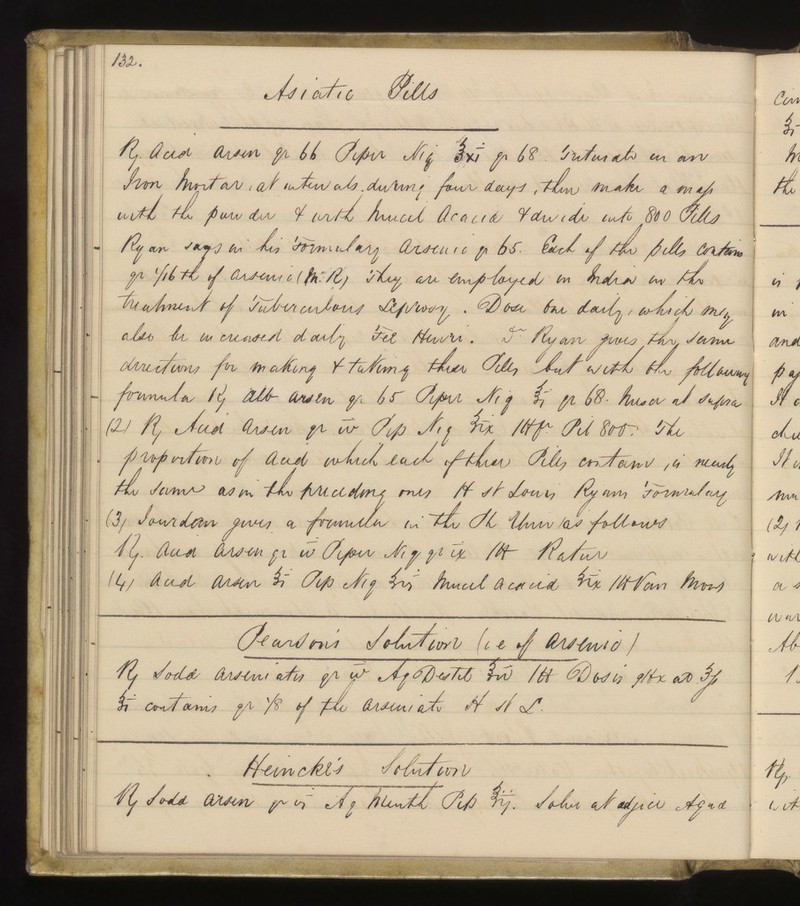 132.
Asiatic Pills
℞ Acid Arsen gr 66 Piper Nig ʒxi gr 68. Triturate in an
Iron Mortar, at intervals, during four days, then make a mass
with the powder & with Mucil Acaciæ & divide into 800 Pills
Ryan says in his Formulary Arsenic gr 65. Each of the pills contains
gr 1/16th of Arsenic (M. R) They are employed in India in the
treatment of Tuberculous Leprosy. Dose one daily, which may
also be increased daily Fee Henri. Dr Ryan gives the same
directions for making & taking these Pills but with the following
formula ℞ Alb arsen gr 65 Piper Nig ℥i gr 68. Misce ut supra
(2) ℞ Acid Arsen gr iv Pip Nig ʒix M ft Pil 800. The
proportion of Acid which each of these Pills contains, is nearly
the same as in the preceding ones H St Louis Ryans Formulary
(3) Jourdan gives a formula in the Ph Univ as follows
℞. Acid Arsen gr iv Piper Nig gr ix M Ratier
(4) Acid Arsen ʒi Pip Nig Mucil Acaciæ M Van Mons
Pearson's Solution (i e of Arsenic)
℞ Sodæ Arseniatis gr iv Aq Destil ℥iv M Dosis gtt x ad ʒss
℥i contains gr 1/8 of the arseniate H St L.
Heincke's Solution
℞ Sodæ Arsen gr vi Aq Menth Pip ℥ij. Solve at adjice Aquæ